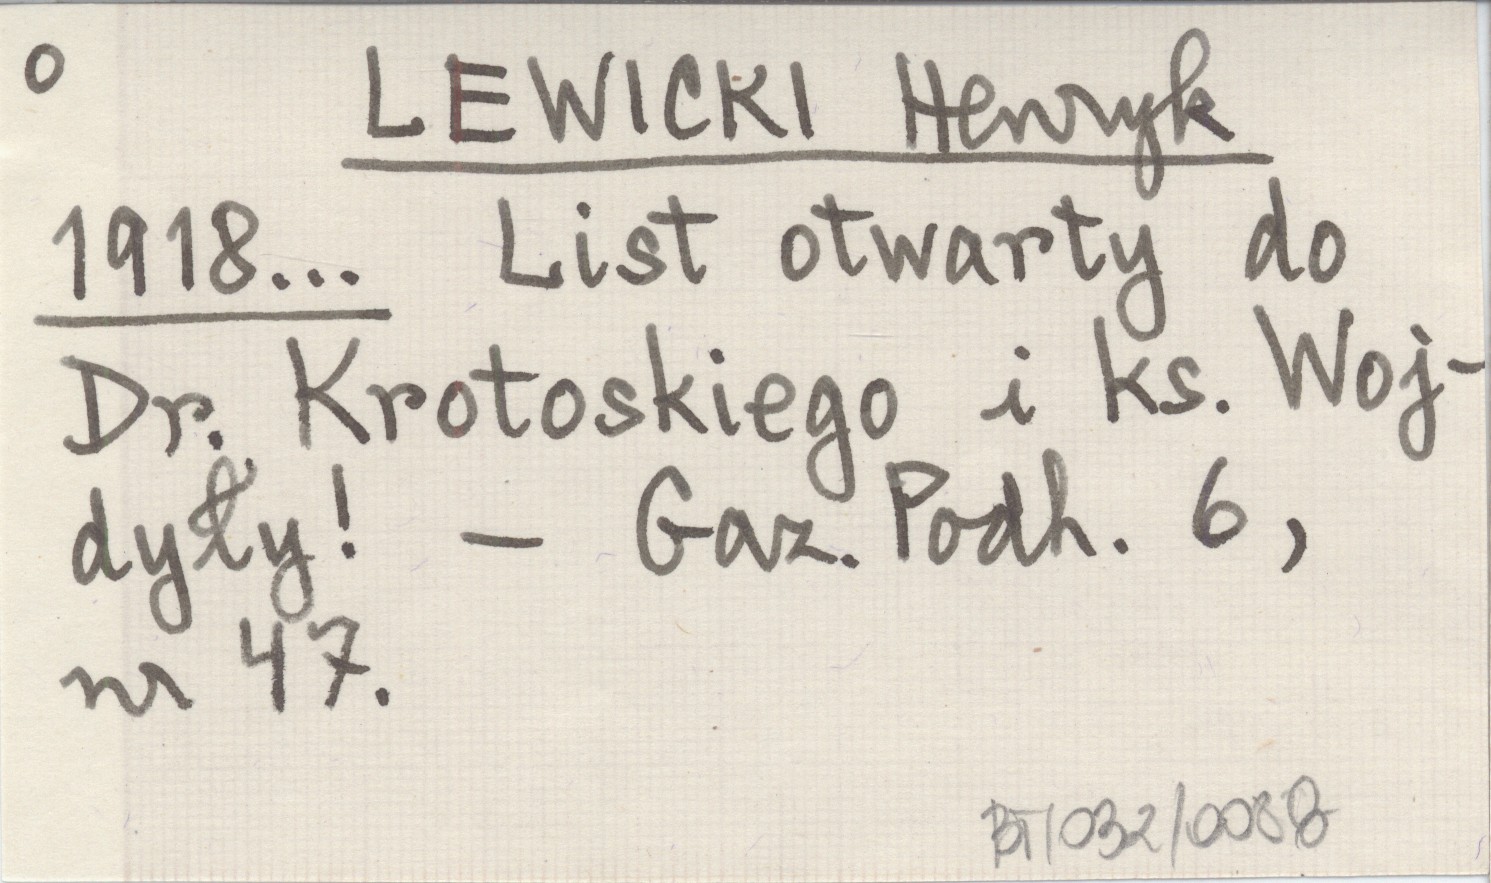 o LEWICKI Henryk
1918... List otwarty do
Dr. Krotoskiego i ks. Woj-
dyły! — Gaz. Podh. 6,
nr 47.
BT/032/0088